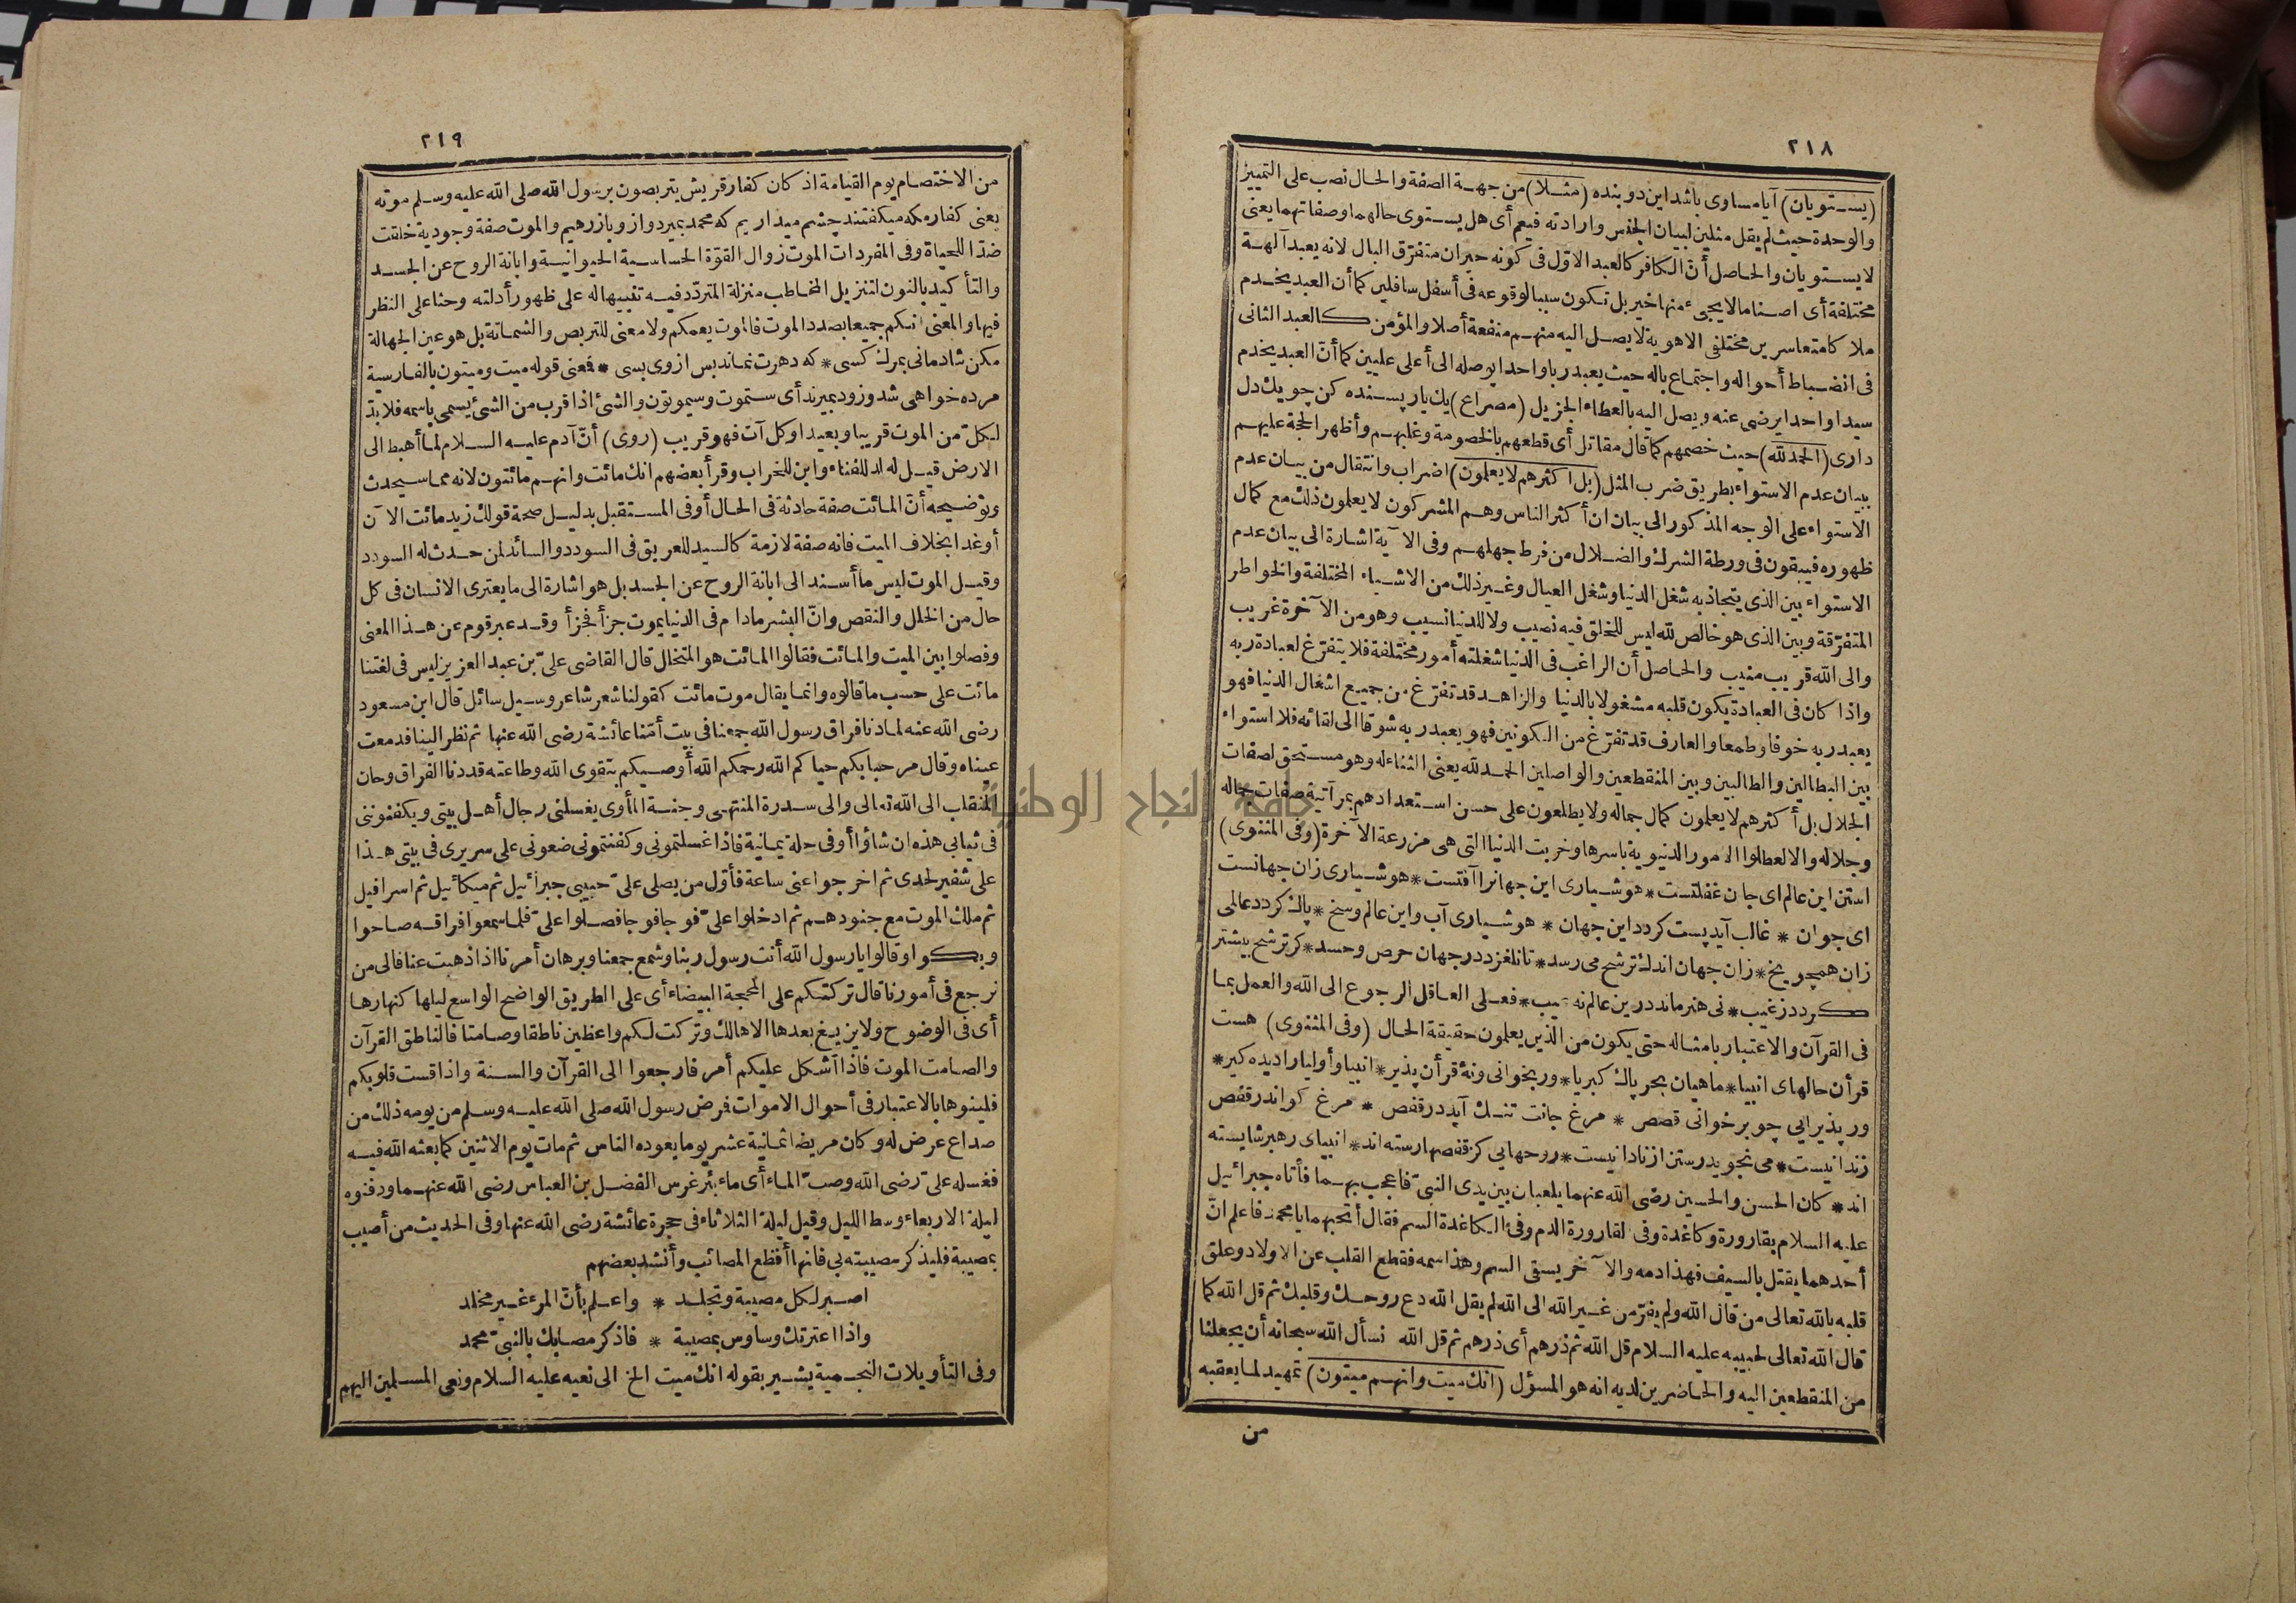 ٢١٨
(يستويان) آيا مساوى باشد اين دو بنده (مثلا) من جهة الصفة والحال نصب على التمييز
والوحدة حيث لم يقل مثلين لبيان الجنس وارادته فيعم أى هل يستوى حالهما وصفاتهما يعنى
لا يستويان والحاصل أنّ الكافر كالعبد الاوّل فى كونه حيران متفرّق البال لانه يعبد آلهة
مختلفة أى اصناما لا يجىء منها خير بل تكون سببا لوقوعه فى أسفل سافلين كما أن العبد يخدم
ملاكا متعاسرين مختلفى الاهوية لا يصل اليه منهم منفعة أصلا والمؤمن كالعبد الثانى
فى انضباط أحواله واجتماع باله حيث يعبد ربا واحدا يوصله الى أعلى عليين كما أنّ العبد يخدم
سيدا واحدا يرضى عنه ويصل اليه بالعطاء الجزيل (مصراع) يك يار پسنده كن چو يك دل
دارى (الحمد لله) حيث خصمهم كما قال مقاتل أى قطعهم بالخصومة وغلبهم وأظهر الحجة عليهم
ببيان عدم الاستواء بطريق ضرب المثل (بل اكثرهم لا يعلمون) اضراب وانتقال من بيان عدم
الاستواء على الوجه المذكور الى بيان ان أكثر الناس وهم المشركون لا يعلمون ذلك مع كمال
ظهوره فيبقون فى ورطة الشرك والضلال من فرط جهلهم وفى الآية اشارة الى بيان عدم
الاستواء بين الذى يتجاذبه شغل الدنيا وشغل العيال وغير ذلك من الاشياء المختلفة والخواطر
المتفرّقة وبين الذى هو خالص لله ليس للخلق فيه نصيب ولا للدنيا نسيب وهو من الآخرة غريب
والى الله قريب منيب والحاصل أن الراغب فى الدنيا شغلته أمور مختلفة فلا يتفرّغ لعبادة ربه
واذا كان فى العبادة يكون قلبه مشغولا بالدنيا والزاهد قد تفرّغ من جميع اشغال الدنيا فهو
يعبد ربه خوفا وطمعا والعارف قد تفرّغ من الكونين فهو يعبد ربه شوقا الى لقائه فلا استواء
بين البطالين والطالبين وبين المنقطعين والواصلين الحمد لله يعنى الثناء له وهو مستحق لصفات
الجلال بل أكثرهم لا يعلمون كمال جماله ولا يطلعون على حسن استعدادهم بمرآتية صفات جماله
وجلاله والا لعطلوا الامور الدنيوية باسرها وخربت الدنيا التى هى مزرعة الآخرة (وفى المثنوى)
استن اين عالم اى جان غفلتست * هوشيارى اين جهانرا آفتست * هوشيارى زان جهانست
اى جوان * غالب آيد پست كردد اين جهان * هوشيارى آب واين عالم وسخ * پاك كردد عالمى
زان همچو يخ * زان جهان اندك ترشح مى رسد * تا نلغزد در جهان حرص وحسد * كر ترشح بيشتر
كردد ز غيب * نى هنر ماند درين عالم نه عيب * فعلى العاقل الرجوع الى الله والعمل بما
فى القرآن والاعتبار بامثاله حتى يكون من الذين يعلمون حقيقة الحال (وفى المثنوى) هست
قرأن حالهاى انبيا * ماهيان بحر پاك كبريا * ور بخوانى ونۀ قرأن پذير * انبيا وأوليا را ديده كير *
ور پذيرايى چو بر خوانى قصص * مرغ جانت تنك آيد در قفص * مرغ كو اندر قفص
زندانيست * مى نجويد رستن از نادانيست * روحهايى كز قفصها رسته اند * انبياى رهبر شايسته
اند * كان الحسن والحسين رضى الله عنهما يلعبان بين يدى النبىّ فاعجب بهما فأتاه جبرائيل
عليه السلام بقارورة وكاغدة وفى القارورة الدم وفى الكاغدة السم فقال أتحبهما يا محمد فاعلم انّ
أحدهما يقتل بالسيف فهذا دمه والآخر يسقى السم وهذا سمه فقطع القلب عن الاولاد وعلق
قلبه بالله تعالى من قال الله ولم يفرّ من غير الله الى الله لم يقل الله دع روحك وقلبك ثم قل الله كما
قال الله تعالى لحبيبه عليه السلام قل الله ثم ذرهم أى ذرهم ثم قل الله نسأل الله سبحانه أن يجعلنا
من المنقطعين اليه والحاضرين لديه انه هو المسؤل (انك ميت وانهم ميتون) تمهيد لما يعقبه
من
٢١٩
من الاختصام يوم القيامة اذ كان كفار قريش يتربصون برسول الله صلى الله عليه وسلم موته
يعنى كفار مكه ميكفتند چشم ميداريم كه محمد بميرد واز وباز رهيم والموت صفة وجودية خلقت
ضدّا للحياة وفى المفردات الموت زوال القوّة الحساسية الحيوانية وابانة الروح عن الجسد
والتأكيد بالنون لتنزيل المخاطب منزلة المتردّد فيه تنبيها له على ظهور أدلته وحثا على النظر
فيها والمعنى انكم جميعا بصدد الموت فالموت يعمكم ولا معنى للتربص والشماتة بل هو عين الجهالة
مكن شادمانى بمرك كسى * كه دهرت نماند بس از وى بسى * فمعنى قوله ميت وميتون بالفارسية
مرده خواهى شد وزود بميرند أى ستموت وسيموتون والشئ اذا قرب من الشئ يسمى باسمه فلا بدّ
لكلّ من الموت قريبا وبعيدا وكل آت فهو قريب (روى) أنّ آدم عليه السلام لما أهبط الى
الارض قيل له لد للفناء وابن للخراب وقرأ بعضهم انك مائت وانهم مائتون لانه مما سيحدث
وتوضيحه أنّ المائت صفة حادثة فى الحال أو فى المستقبل بدليل صحة قولك زيد مائت الآن
أو غدا بخلاف الميت فانه صفة لازمة كالسيد للعريق فى السودد والسائد لمن حدث له السودد
وقيل الموت ليس ما أسند الى ابانة الروح عن الجسد بل هو اشارة الى ما يعترى الانسان فى كل
حال من الخلل والنقص وانّ البشر مادام فى الدنيا يموت جزأ فجزأ وقد عبر قوم عن هذا المعنى
وفصلوا بين الميت والمائت فقالوا المائت هو المتحال قال القاضى علىّ بن عبد العزيز ليس فى لغتنا
مائت على حسب ما قالوه وانما يقال موت مائت كقولنا شعر شاعر وسيل سائل قال ابن مسعود
رضى الله عنه لما دنا فراق رسول الله جمعنا فى بيت أمّنا عائشة رضى الله عنها ثم نظر الينا فدمعت
عيناه وقال مرحبا بكم حياكم الله رحمكم الله أوصيكم بتقوى الله وطاعته قد دنا الفراق وحان
المنقلب الى الله تعالى والى سدرة المنتهى وجنة المأوى يغسلنى رجال أهل بيتى ويكفنوننى
فى ثيابى هذه ان شاؤا أو فى حلة يمانية فاذا غسلتمونى وكفنتمونى ضعونى على سريرى فى بيتى هذا
على شفير لحدى ثم اخرجوا عنى ساعة فأوّل من يصلى علىّ حبيبى جبرائيل ثم ميكائيل ثم اسرافيل
ثم ملك الموت مع جنودهم ثم ادخلوا علىّ فوجا فوجا فصلوا علىّ فلما سمعوا فراقه صاحوا
وبكوا وقالوا يا رسول الله أنت رسول ربنا وشمع جمعنا وبرهان أمرنا اذا ذهبت عنا فالى من
نرجع فى أمورنا قال تركتكم على المحجة البيضاء أى على الطريق الواضح الواسع ليلها كنهارها
أى فى الوضوح ولا يزيغ بعدها الا هالك وتركت لكم واعظين ناطقا وصامتا فالناطق القرآن
والصامت الموت فاذا أشكل عليكم أمر فارجعوا الى القرآن والسنة واذا قست قلوبكم
فلينوها بالاعتبار فى أحوال الاموات فمرض رسول الله صلى الله عليه وسلم من يومه ذلك من
صداع عرض له وكان مريضا ثمانية عشر يوما يعوده الناس ثم مات يوم الاثنين كما بعثه الله فيه
فغسله علىّ رضى الله وصبّ الماء أى ماء بئر غرس الفضل بن العباس رضى الله عنهما ودفنوه
ليلة الاربعاء وسط الليل وقيل ليلة الثلاثاء فى حجرة عائشة رضى الله عنها وفى الحديث من أصيب
بمصيبة فليذكر مصيبته بى فانها أفظع المصائب وأنشد بعضهم
اصبر لكل مصيبة وتجلد * واعلم بأنّ المرء غير مخلد
واذا اعترتك وساوس بمصيبة * فاذكر مصابك بالنبىّ محمد
وفى التأويلات النجمية يشير بقوله انك ميت الخ الى نعيه عليه السلام ونعى المسلمين اليهم
جامعة النجاح الوطنية